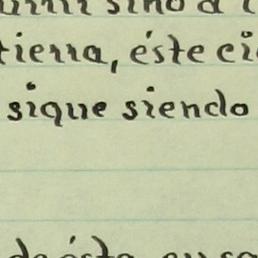 sino a
tierra, éste
sigue siendo
de ésta, en